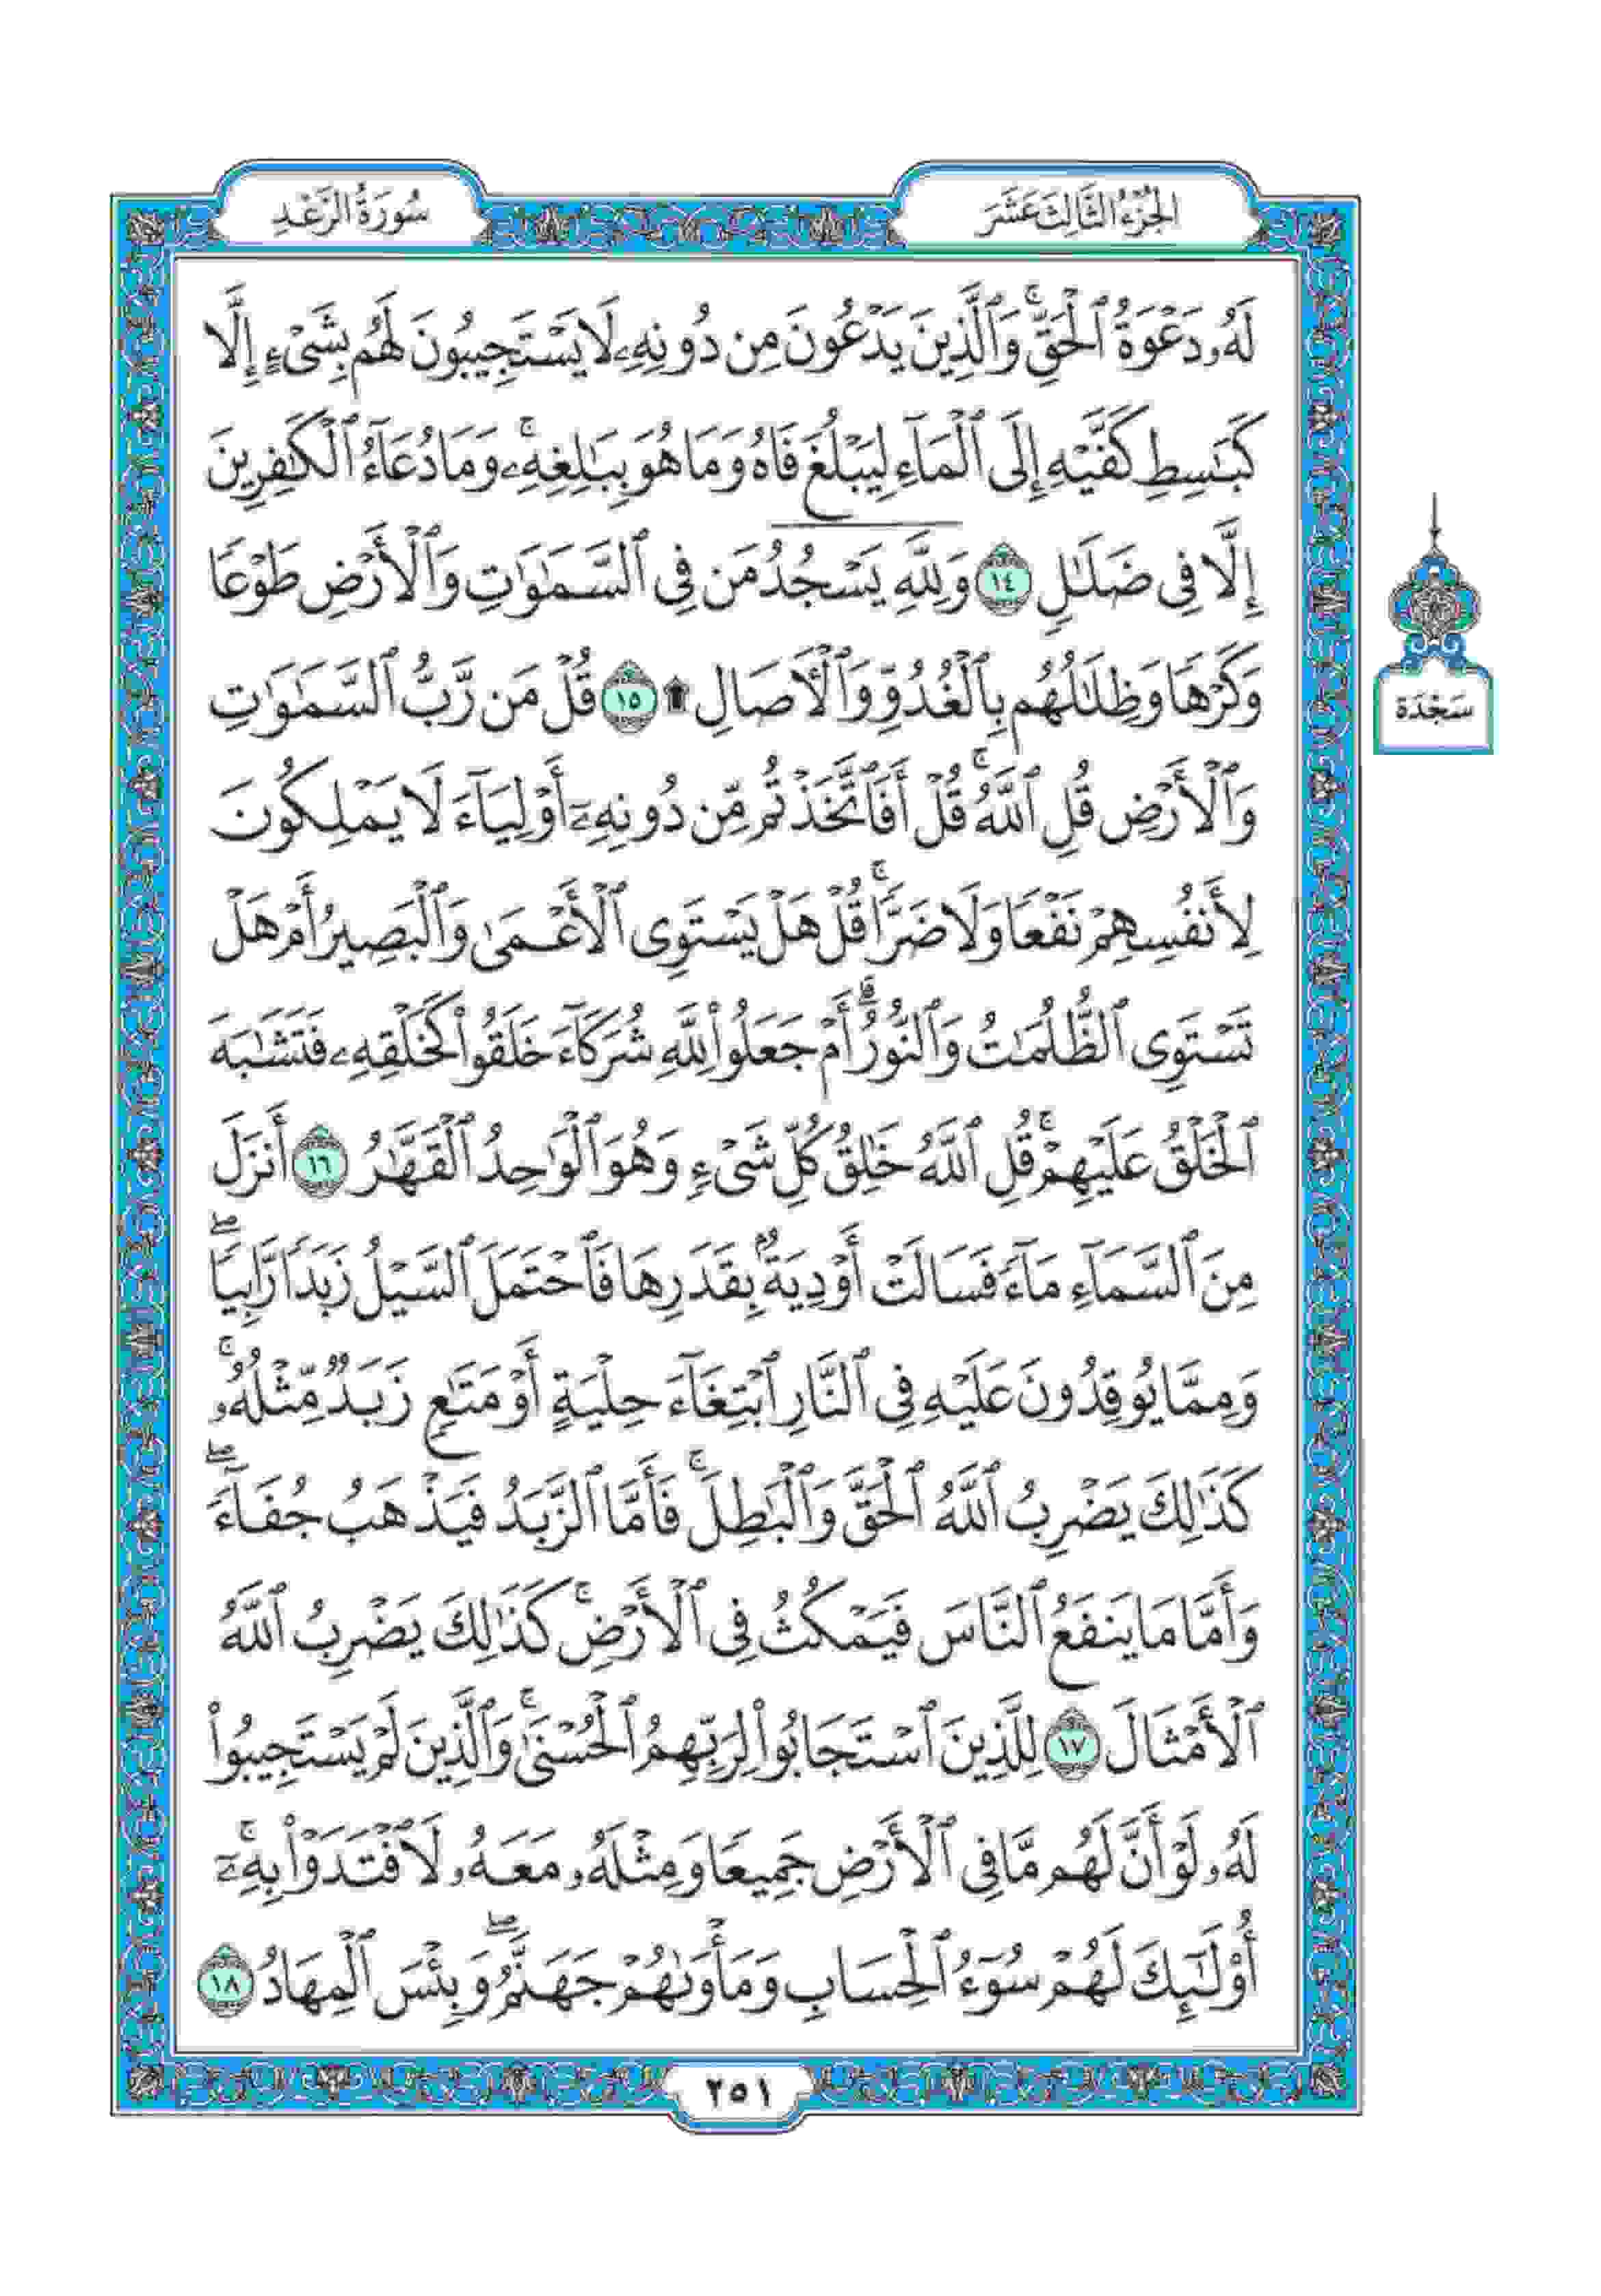 الجُزْءُ الثَّالِثَ عَشَرَ
سُورَةُ الرَّعْدِ
لَهُۥ دَعْوَةُ ٱلْحَقِّۚ وَٱلَّذِينَ يَدْعُونَ مِن دُونِهِۦ لَا يَسْتَجِيبُونَ لَهُم بِشَىْءٍ إِلَّا
كَبَٰسِطِ كَفَّيْهِ إِلَى ٱلْمَآءِ لِيَبْلُغَ فَاهُ وَمَا هُوَ بِبَٰلِغِهِۦۚ وَمَا دُعَآءُ ٱلْكَٰفِرِينَ
إِلَّا فِى ضَلَٰلٍ ١٤ وَلِلَّهِ يَسْجُدُ مَن فِى ٱلسَّمَٰوَٰتِ وَٱلْأَرْضِ طَوْعًا
وَكَرْهًا وَظِلَٰلُهُم بِٱلْغُدُوِّ وَٱلْـَٔاصَالِ ۩ ١٥ قُلْ مَن رَّبُّ ٱلسَّمَٰوَٰتِ
وَٱلْأَرْضِ قُلِ ٱللَّهُۚ قُلْ أَفَٱتَّخَذْتُم مِّن دُونِهِۦٓ أَوْلِيَآءَ لَا يَمْلِكُونَ
لِأَنفُسِهِمْ نَفْعًا وَلَا ضَرًّاۚ قُلْ هَلْ يَسْتَوِى ٱلْأَعْمَىٰ وَٱلْبَصِيرُ أَمْ هَلْ
تَسْتَوِى ٱلظُّلُمَٰتُ وَٱلنُّورُۗ أَمْ جَعَلُوا۟ لِلَّهِ شُرَكَآءَ خَلَقُوا۟ كَخَلْقِهِۦ فَتَشَٰبَهَ
ٱلْخَلْقُ عَلَيْهِمْۚ قُلِ ٱللَّهُ خَٰلِقُ كُلِّ شَىْءٍ وَهُوَ ٱلْوَٰحِدُ ٱلْقَهَّٰرُ ١٦ أَنزَلَ
مِنَ ٱلسَّمَآءِ مَآءً فَسَالَتْ أَوْدِيَةٌۢ بِقَدَرِهَا فَٱحْتَمَلَ ٱلسَّيْلُ زَبَدًا رَّابِيًاۖ
وَمِمَّا يُوقِدُونَ عَلَيْهِ فِى ٱلنَّارِ ٱبْتِغَآءَ حِلْيَةٍ أَوْ مَتَٰعٍ زَبَدٌ مِّثْلُهُۥۚ
كَذَٰلِكَ يَضْرِبُ ٱللَّهُ ٱلْحَقَّ وَٱلْبَٰطِلَۚ فَأَمَّا ٱلزَّبَدُ فَيَذْهَبُ جُفَآءًۖ
وَأَمَّا مَا يَنفَعُ ٱلنَّاسَ فَيَمْكُثُ فِى ٱلْأَرْضِۚ كَذَٰلِكَ يَضْرِبُ ٱللَّهُ
ٱلْأَمْثَالَ ١٧ لِلَّذِينَ ٱسْتَجَابُوا۟ لِرَبِّهِمُ ٱلْحُسْنَىٰۚ وَٱلَّذِينَ لَمْ يَسْتَجِيبُوا۟
لَهُۥ لَوْ أَنَّ لَهُم مَّا فِى ٱلْأَرْضِ جَمِيعًا وَمِثْلَهُۥ مَعَهُۥ لَٱفْتَدَوْا۟ بِهِۦٓۚ
أُو۟لَٰٓئِكَ لَهُمْ سُوٓءُ ٱلْحِسَابِ وَمَأْوَىٰهُمْ جَهَنَّمُۖ وَبِئْسَ ٱلْمِهَادُ ١٨
سَجْدَة
٢٥١